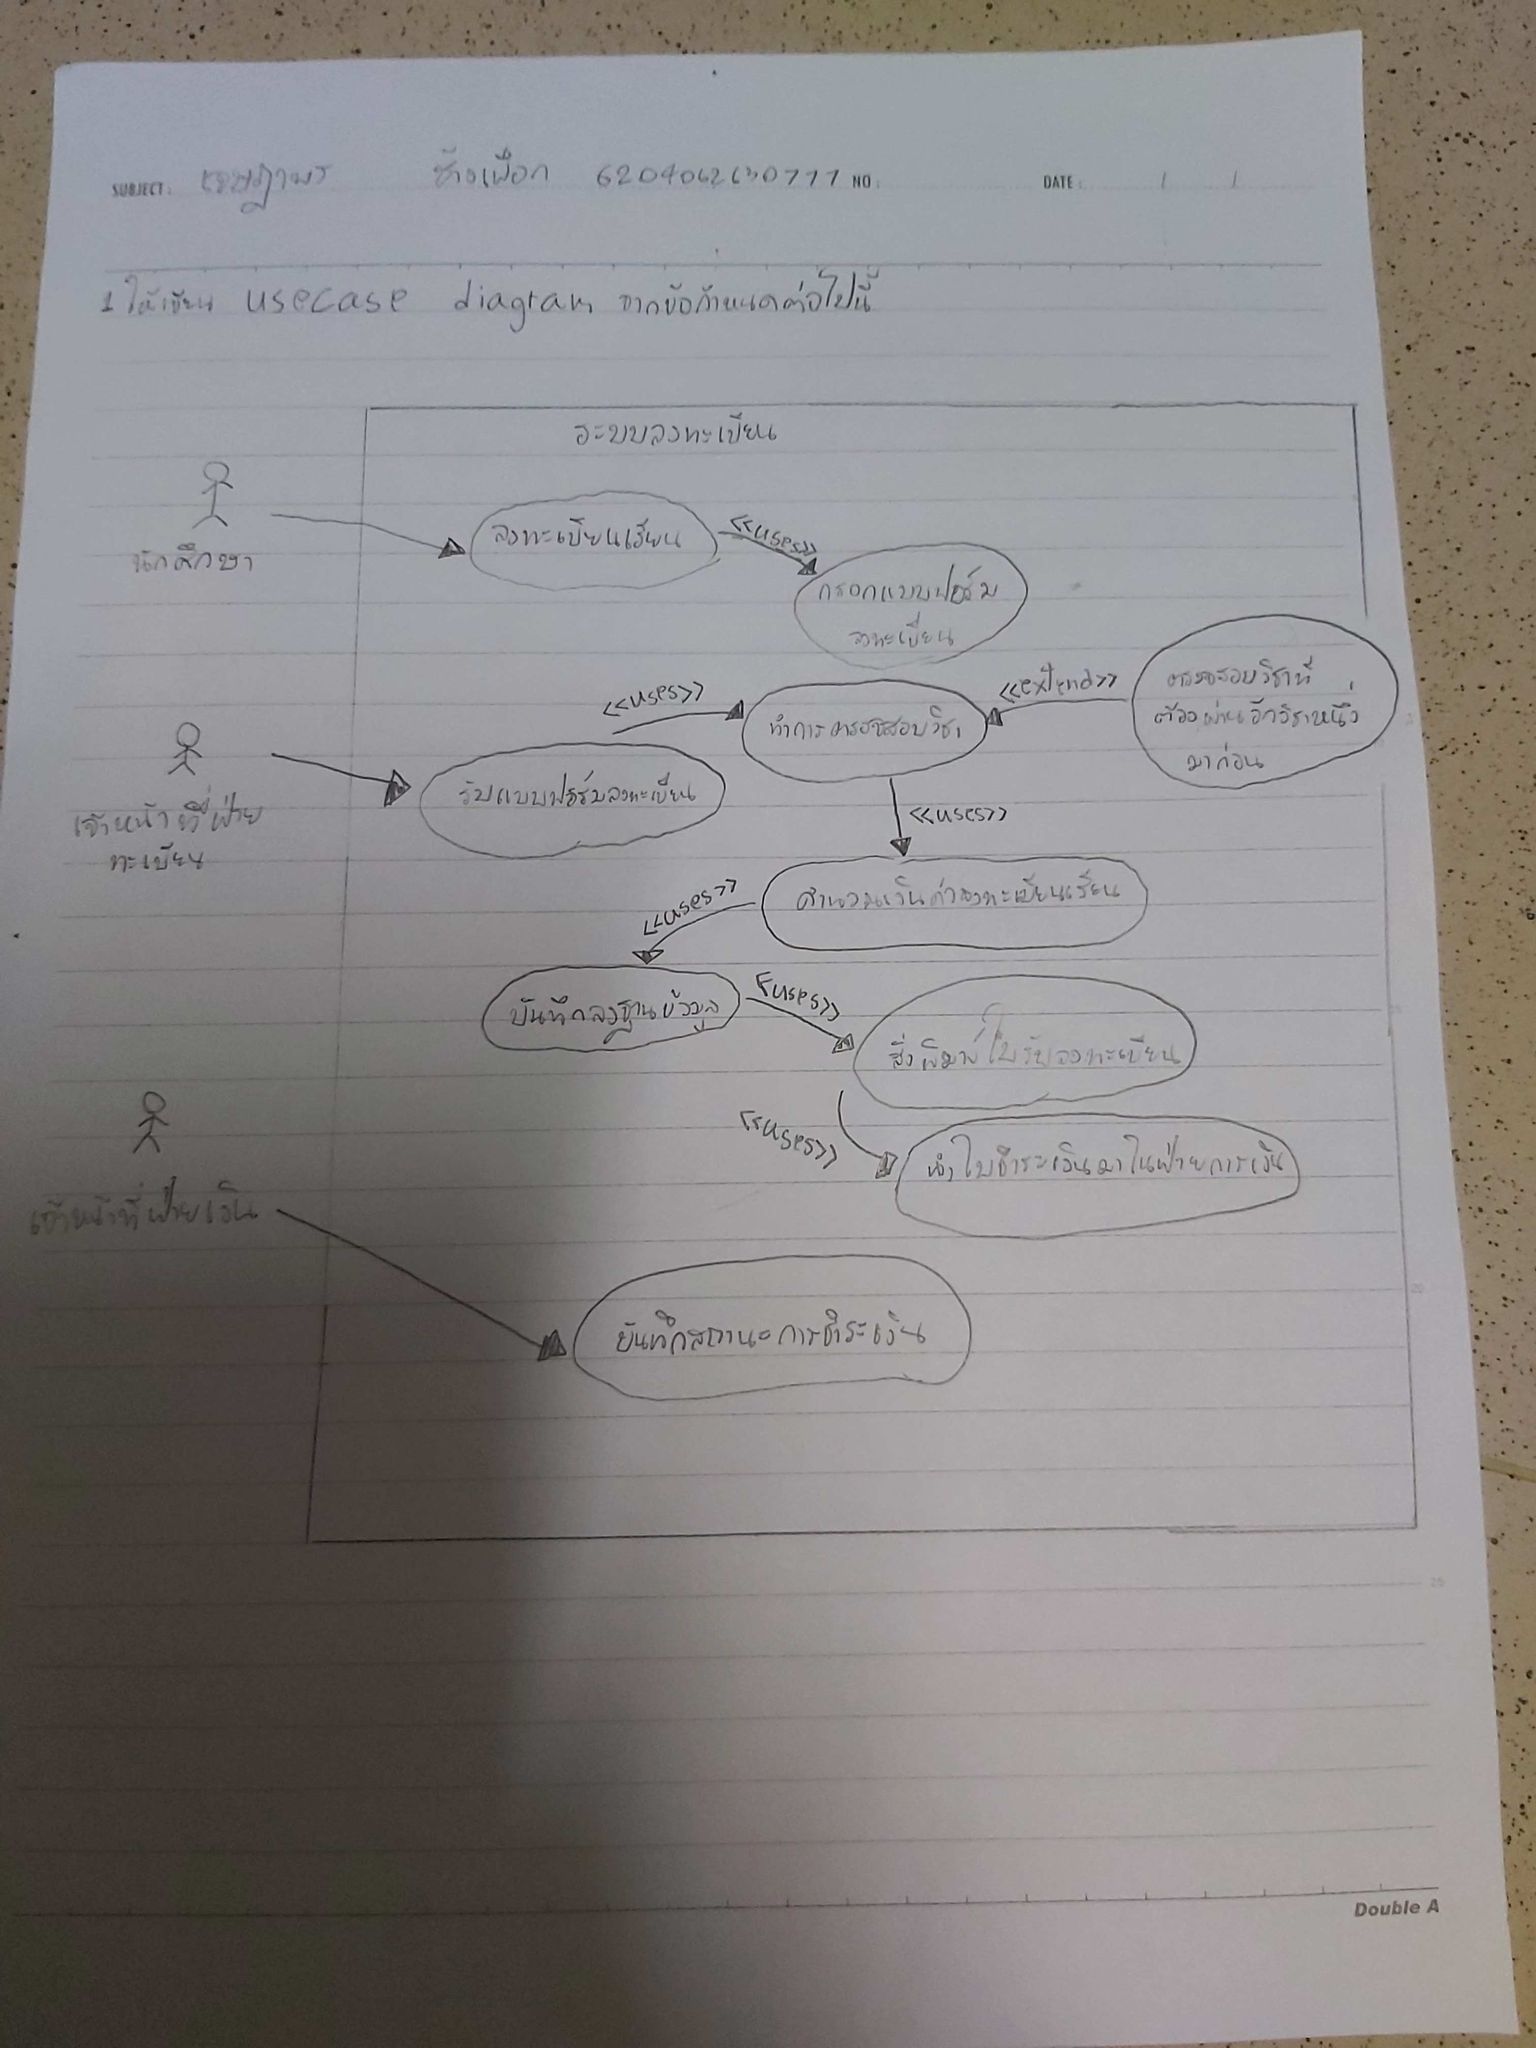 SUBJECT: ช้างเผือก NO: DATE: / /
1 ให้เขียน usecase diagram จากข้อกำหนดต่อไปนี้
ระบบลงทะเบียน
นักศึกษา
ลงทะเบียนเรียน
<<uses>>
กรอกแบบฟอร์ม
ลงทะเบียน
เจ้าหน้าที่ฝ่าย
ทะเบียน
รับแบบฟอร์มลงทะเบียน
<<uses>>
ทำการตรวจสอบวิชา
<<extend>>
ตรวจสอบวิชาที่
ต้องผ่านอีกวิชาหนึ่ง
มาก่อน
<<uses>>
คำนวณเงินค่าลงทะเบียนเรียน
<<uses>>
บันทึกลงฐานข้อมูล
<uses>>
สั่งพิมพ์ใบรับลงทะเบียน
<<uses>>
นำใบชำระเงินมาในฝ่ายการเงิน
เจ้าหน้าที่ฝ่ายเงิน
บันทึกสถานะการชำระเงิน
Double A